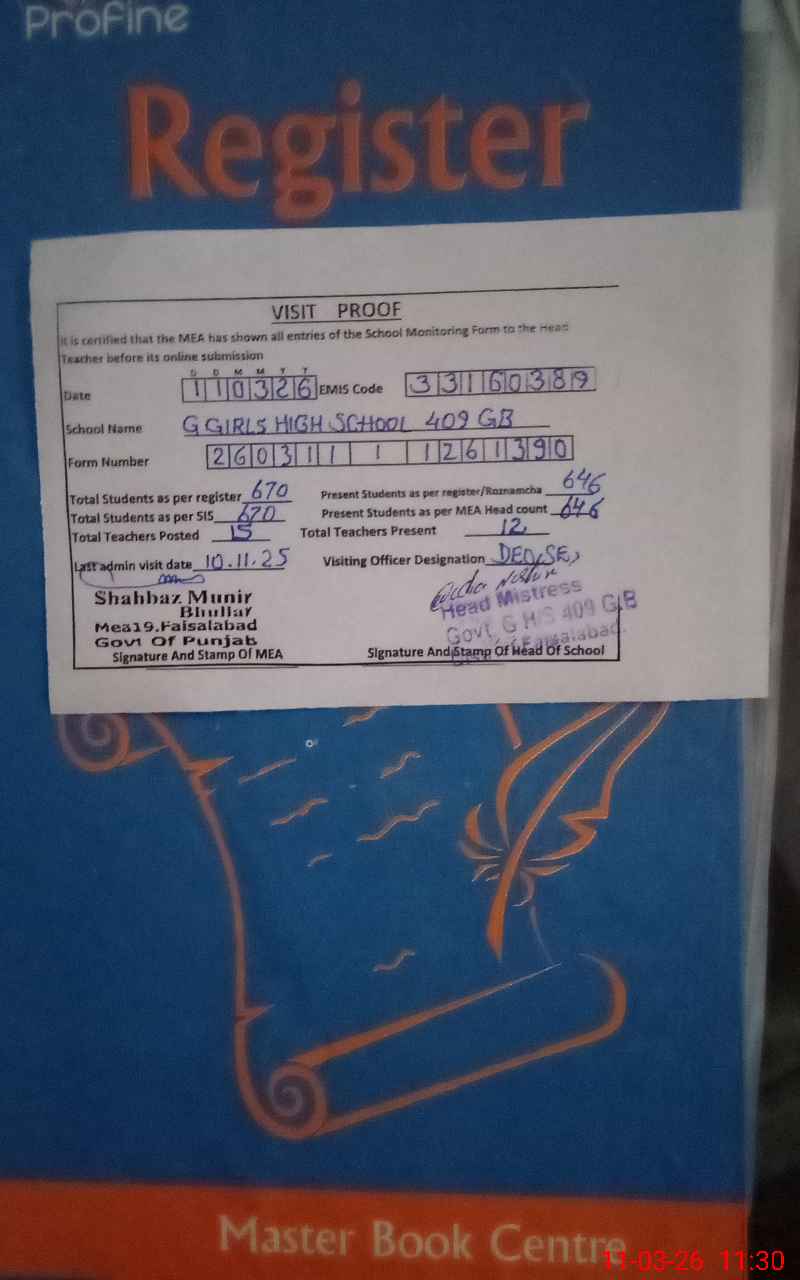 Profine
Register
VISIT PROOF
It is certified that the MEA has shown all entries of the School Monitoring Form to the Head
Teacher before its online submission
D D M M Y Y
Date 110326 EMIS Code 33160389
School Name G GIRLS HIGH SCHOOL 409 GB
Form Number 260311 1 1 1261390
Total Students as per register 670 Present Students as per register/Roznamcha 646
Total Students as per SIS 670 Present Students as per MEA Head count 646
Total Teachers Posted 15 Total Teachers Present 12
Last admin visit date 10.11.25 Visiting Officer Designation DEO(SE)
Shahbaz Munir
Bhullar
Mea19,Faisalabad
Govt Of Punjab
Signature And Stamp Of MEA
Head Mistress
Govt. G H/S 409 G.B
Faisalabad.
Signature And Stamp Of Head Of School
Master Book Centre
11-03-26 11:30